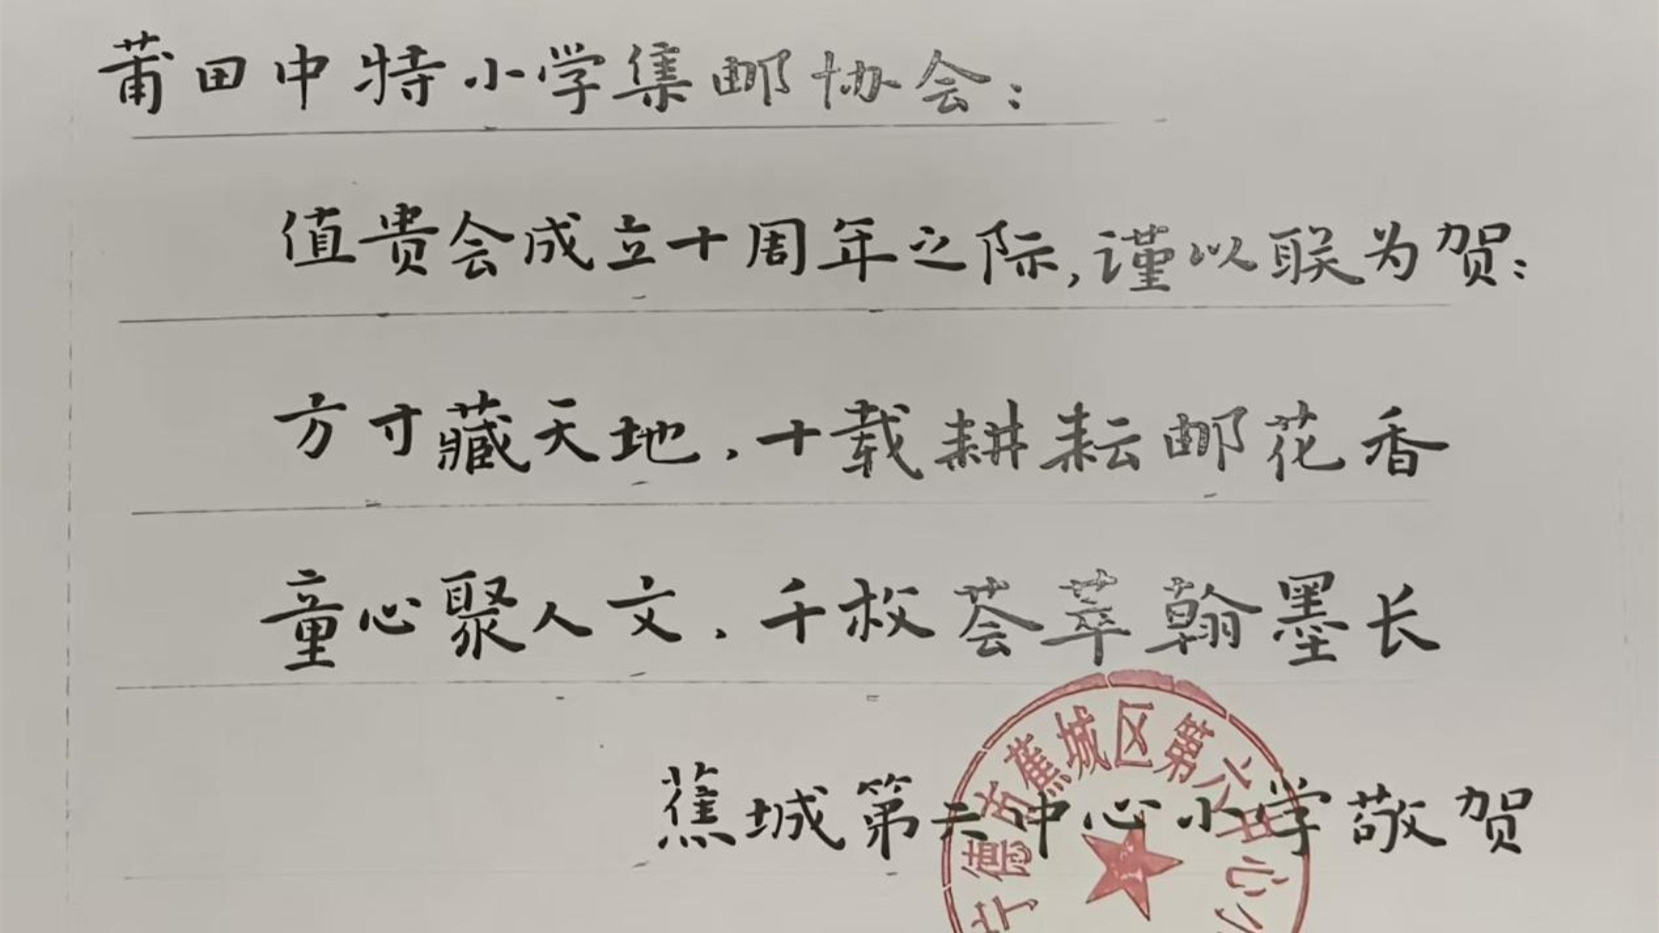 莆田中特小学集邮协会：
值贵会成立十周年之际,谨以联为贺：
方寸藏天地，十载耕耘邮花香
童心聚人文，千枚荟萃翰墨长
蕉城第六中心小学敬贺
宁德市蕉城区第六中心小